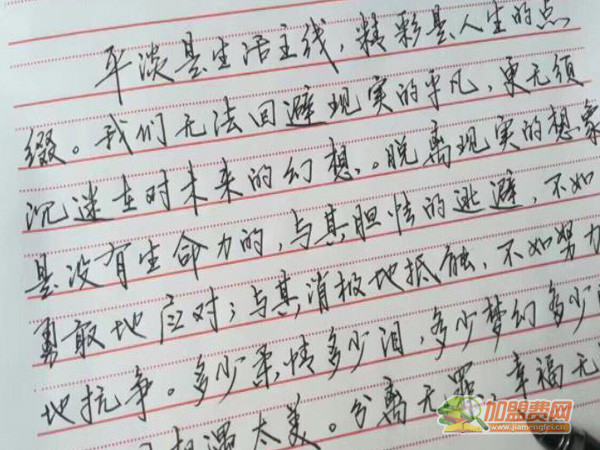 平淡是生活主线，精彩是人生的点
缀。我们无法回避现实的平凡，更无须
沉迷在对未来的幻想。脱离现实的想象
是没有生命力的，与其胆怯的逃避，不如
勇敢地应对；与其消极地抵触，不如努力
地抗争。多少柔情多少泪，多少梦幻多少
相遇太美。分离无罪，幸福无
加盟费网
www.jiamengfei.cn